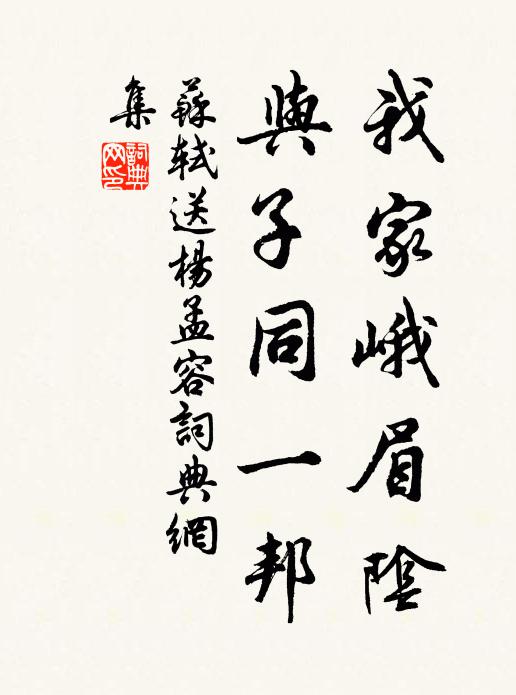 我家峨眉陰
與子同一邦
蘇軾送楊孟容詞典網
集
詞典
网印